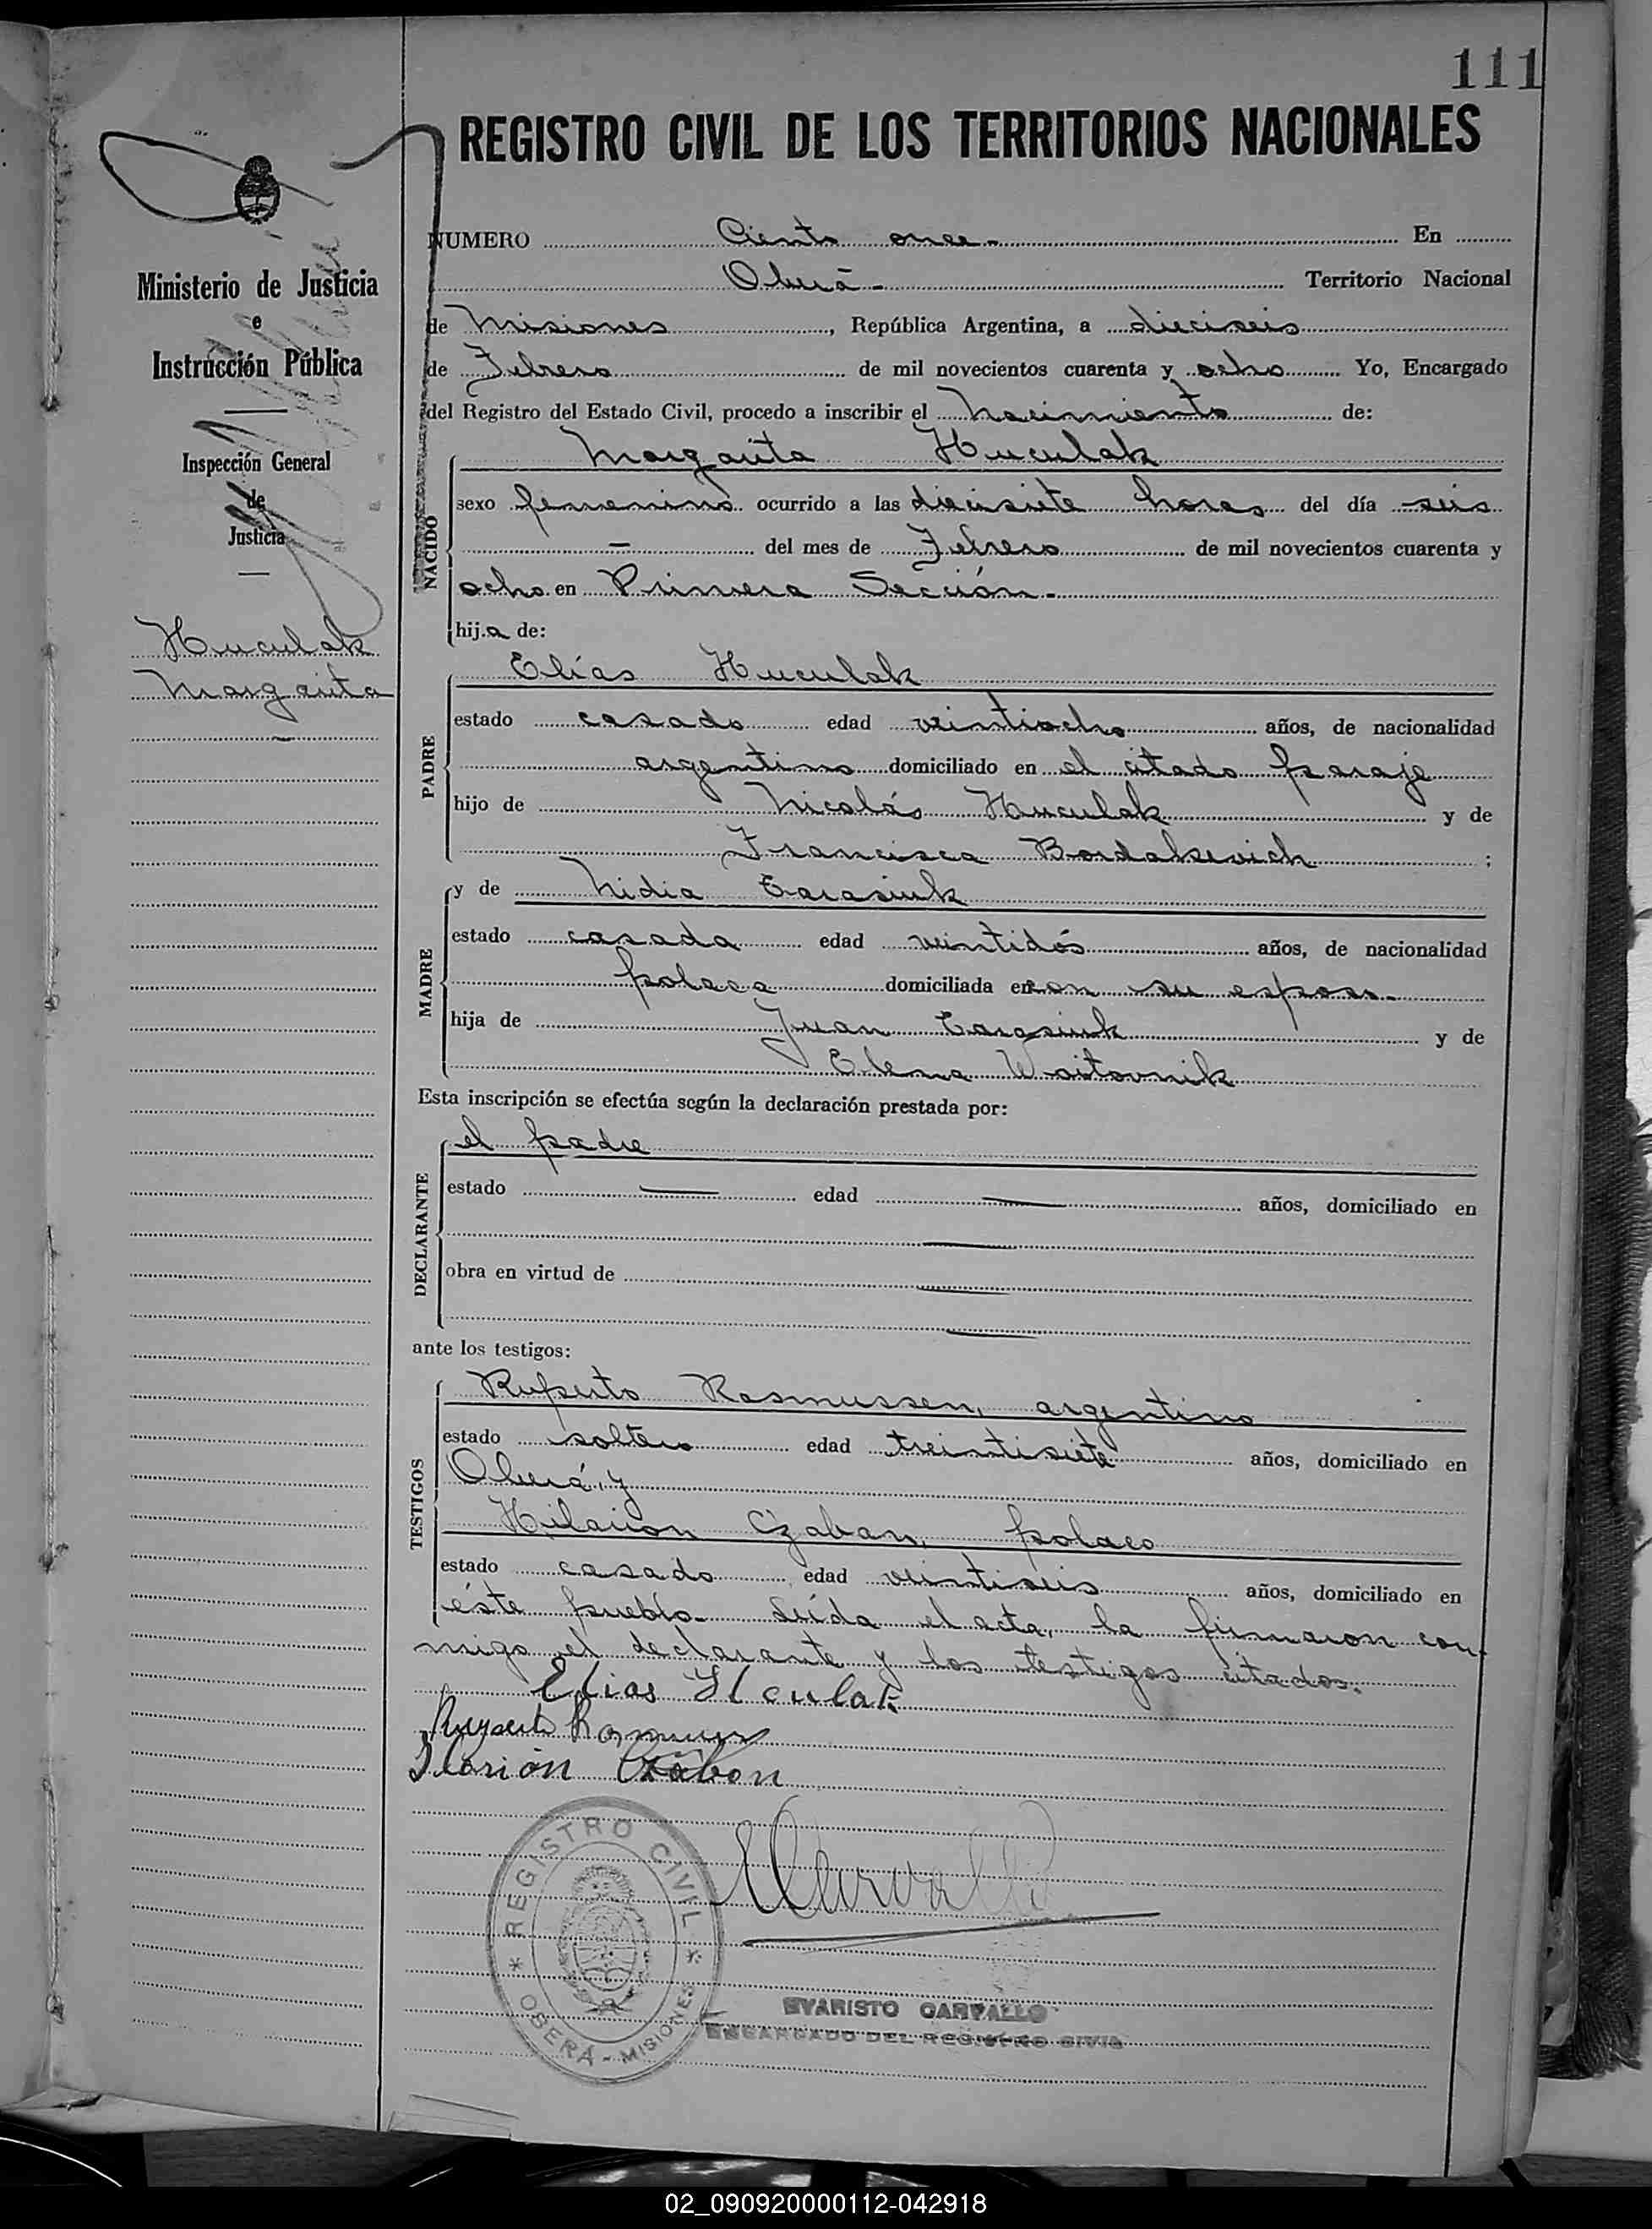 111
REGISTRO CIVIL DE LOS TERRITORIOS NACIONALES
Ministerio de Justicia
e
Instrucción Pública
Inspección General
de
Justicia
Huculak
Margarita
NUMERO Ciento once.- En
Oberá - Territorio Nacional
de Misiones, República Argentina, a dieciseis
de Febrero de mil novecientos cuarenta y ocho Yo, Encargado
del Registro del Estado Civil, procedo a inscribir el nacimiento de:
NACIDO
Margarita Huculak
sexo femenino ocurrido a las diecisiete horas del día seis
- del mes de Febrero de mil novecientos cuarenta y
ocho en Primera Sección.-
hija de:
PADRE
Elías Huculak
estado casado edad veintiocho años, de nacionalidad
argentino domiciliado en el citado paraje
hijo de Nicolás Huculak y de
Francisca Bordakevich ;
MADRE
y de Nidia Tarasiuk
estado casada edad veintidós años, de nacionalidad
polaca domiciliada en con su esposo.-
hija de Juan Tarasiuk y de
Elena Woitovnik
Esta inscripción se efectúa según la declaración prestada por:
DECLARANTE
el padre
estado — edad — años, domiciliado en
—
obra en virtud de —
—
ante los testigos:
TESTIGOS
Ruperto Rasmussen, argentino
estado soltero edad treintisiete años, domiciliado en
Oberá, y
Hilarion Czaban, polaco
estado casado edad veintiseis años, domiciliado en
éste pueblo.- Leída el acta, la firmaron con-
migo el declarante y los testigos citados.
Elias Huculak
Ruperto Rasmussen
Ilarión Czabon
ECarvallo
REGISTRO CIVIL
* OBERÁ - MISIONES *
EVARISTO CARVALLO
ENCARGADO DEL REGISTRO CIVIL
02_090920000112-042918